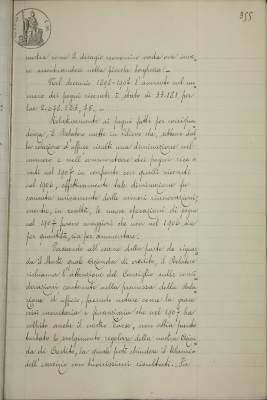 355
mostra come il disagio economico vada ora man
mano accentuandosi nella piccola borghesia.
Nel decennio 1898-1907 l'aumento nel nu-
mero dei pegni ricevuti è stato di
Relativamente ai pegni fatti per corrispon-
denza, il Relatore mette in rilievo che, sebbene dal-
la relazione d'ufficio risulti una diminuzione nel
numero e nell'ammontare dei pegni rice-
vuti nel 1907 in confronto con quelli ricevuti
nel 1906, effettivamente tale diminuzione fu
causata unicamente dalle minori rinnovazioni,
mentre, in realtà, le nuove operazioni di pegno
nel 1907 furono maggiori che non nel 1906 sia
per quantità, sia per ammontare.
Passando all'esame della parte che riguar-
da il Monte quale Azienda di credito, il Relatore
richiama l'attenzione del Consiglio sulle consi-
derazioni contenute nella premessa della Rela-
zione d'ufficio, facendo notare come la grave
crisi monetaria e finanziaria che nel 1907 ha
colpito anche il nostro Paese, non abbia punto
turbato lo svolgimento regolare della nostra Azien-
da di Credito, la quale poté chiudere il bilancio
dell'esercizio con buonissimi risultati.